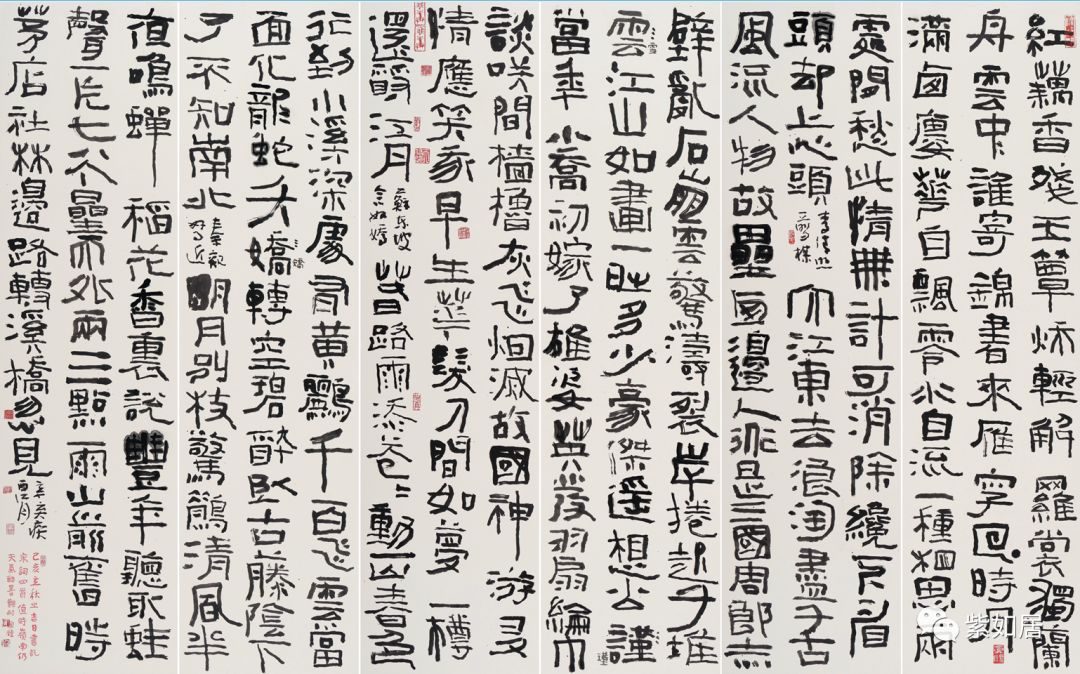 紅藕香殘玉簟秋輕解羅裳獨蘭
舟雲中誰寄錦書來雁字回時月
滿西廔花自飄零水自流一種相思兩
處閒愁此情無計可消除纔下眉
頭却上心頭 李清照 一剪梅 大江東去浪淘盡千古
風流人物故壘西邊人道是三國周郎赤
壁亂石崩雲驚濤裂岸捲起千堆
雲雪江山如畫一時多少豪傑遥想公謹瑾
當年小喬初嫁了雄姿英發羽扇綸巾
談咲間檣櫓灰飛烟滅故國神游多
情應笑我早生華髮人間如夢一樽
還酹江月 蘇東坡 念奴嬌 春路雨添花花動一山春色
行到小溪深處有黃鸝千百飛雲當
面化龍蛇夭嬌轉空碧醉臥古藤陰下
了不知南北 秦觀 好事近 明月別枝驚鵲清風半
夜鳴蟬稻花香裏說豐年聽取蛙
聲一片七八星天外兩三點雨山前舊時
茅店社林邊路轉溪橋忽見 辛弃疾 西江月
己亥立秋之吉日書
宋詞四首值時
紫如居